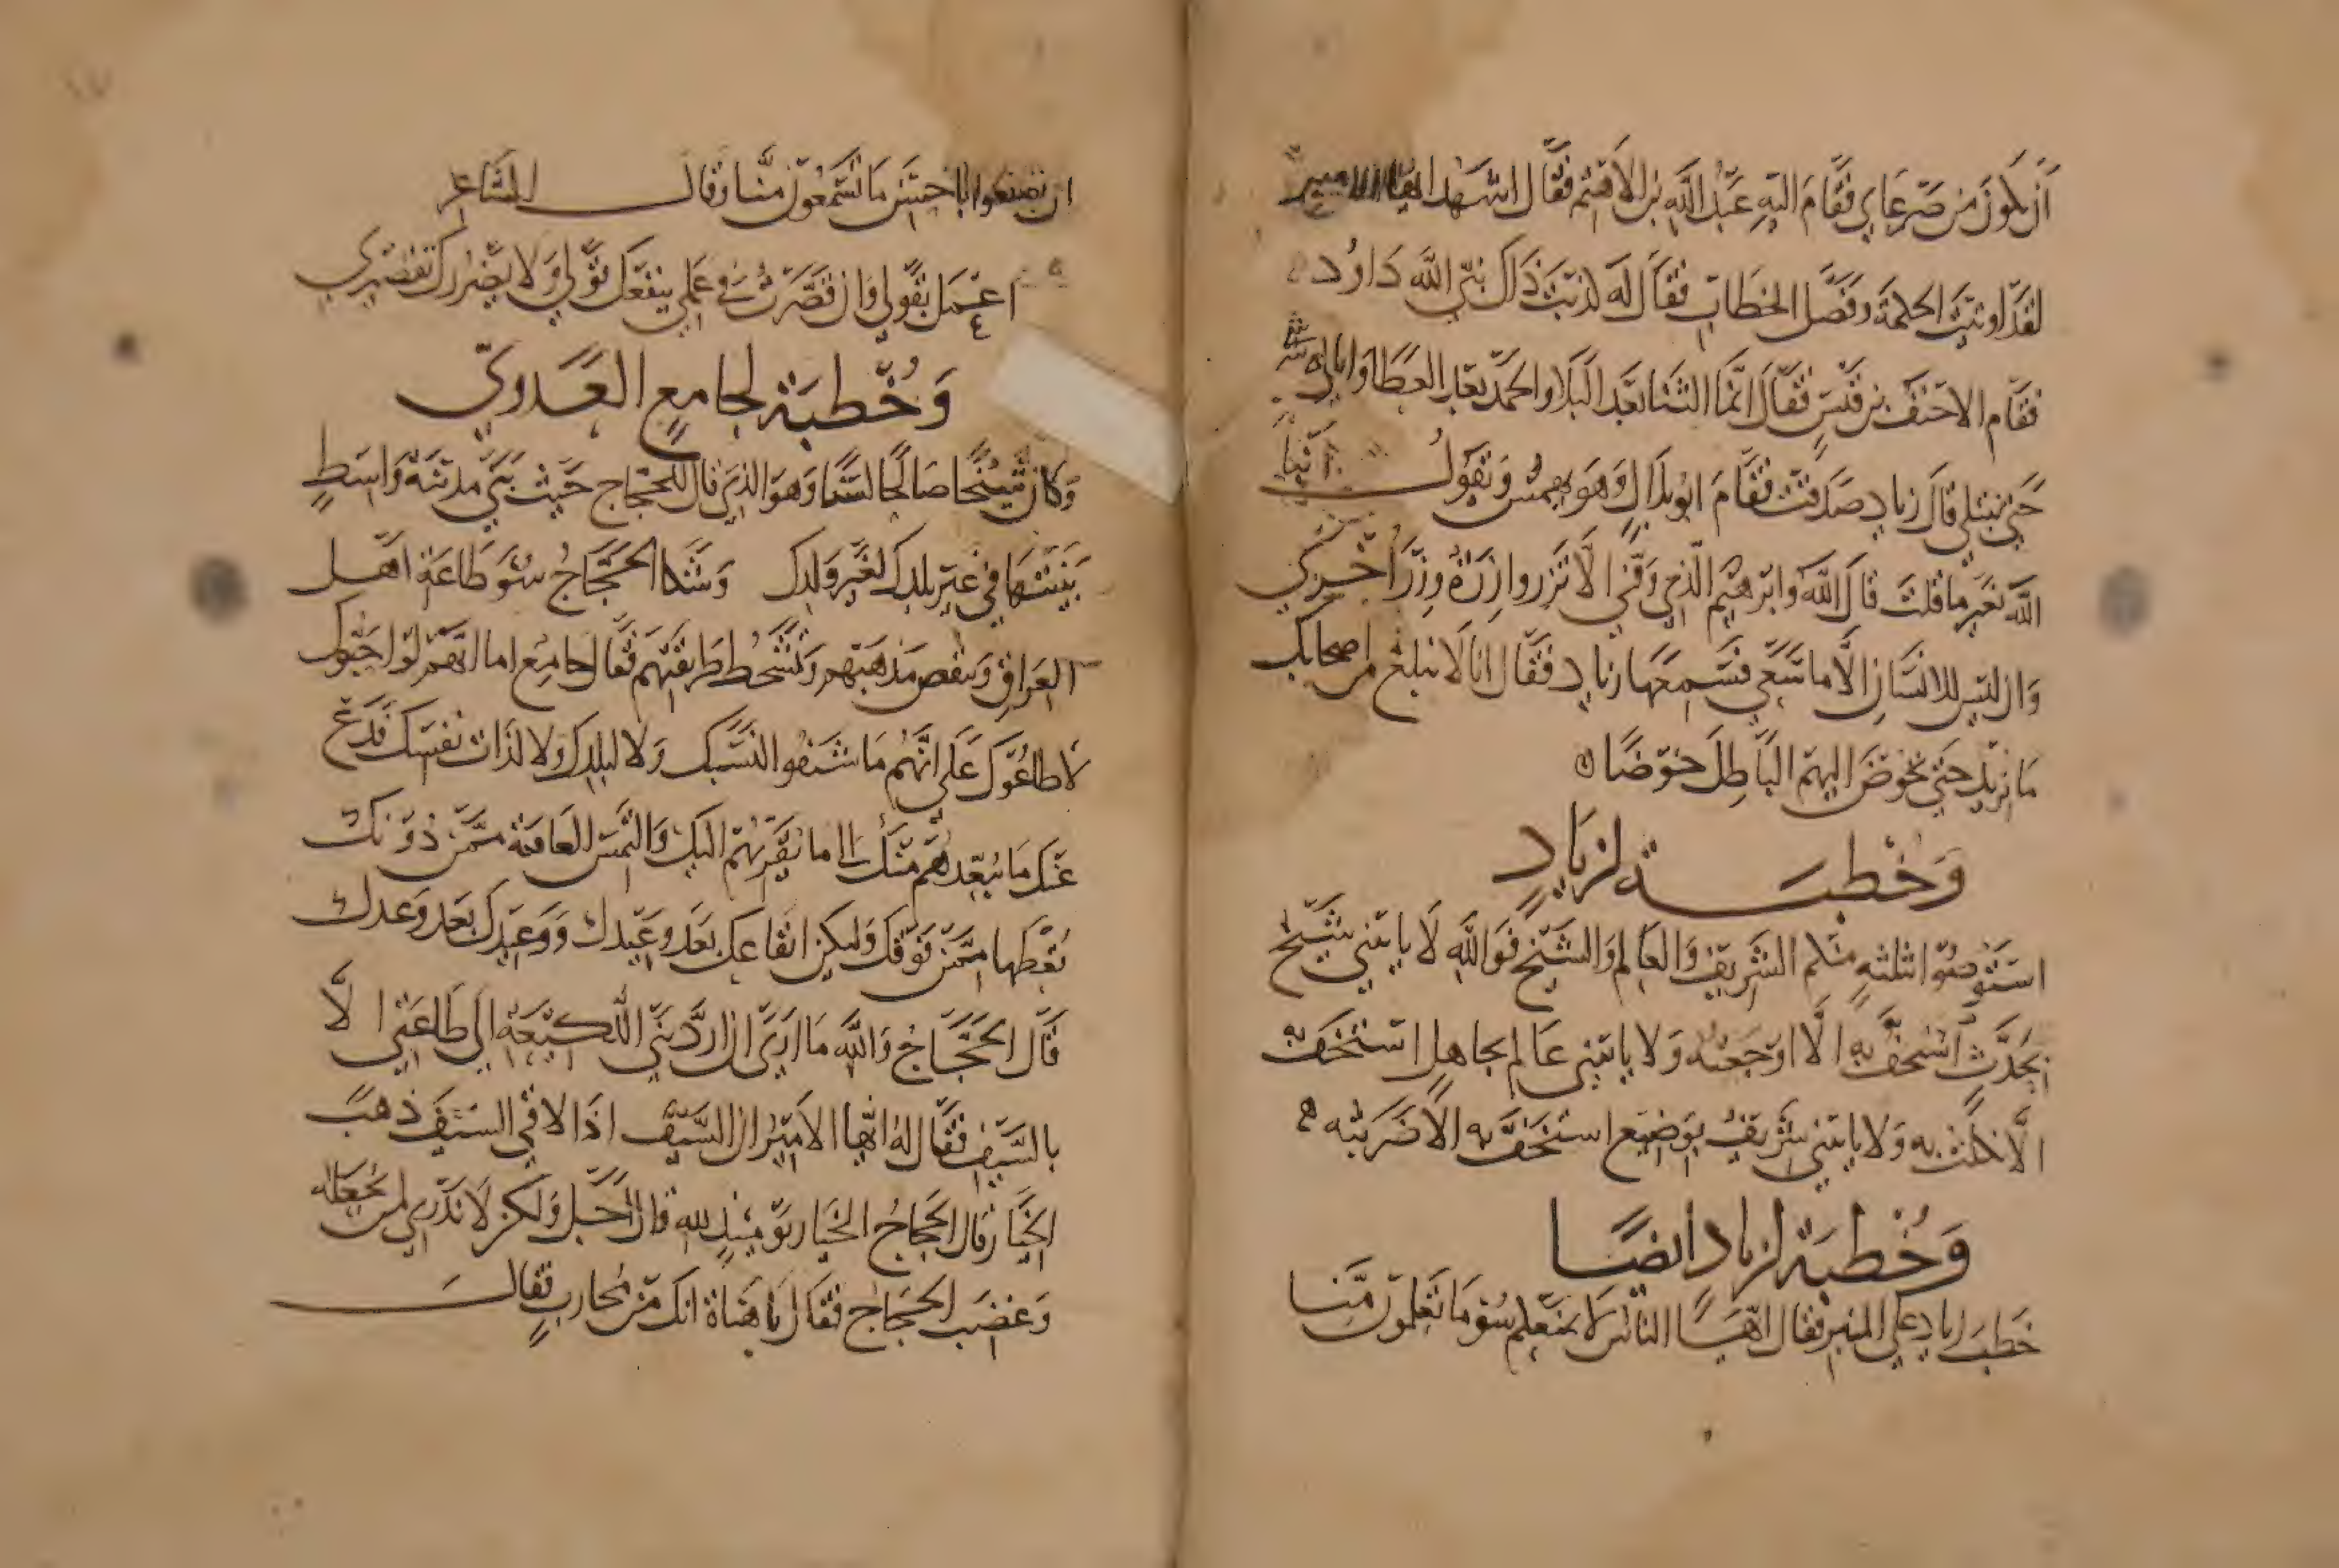 أن يكون من صرعاي فقام اليه عبد الله بن الاهتم فقال اشهد ايها الامير
لقد اوتيت الحكمة وفصل الخطاب فقال له كذبت ذاك نبي الله داود
فقام الاحنف بن قيس فقال انما الثنا بعد البلا والحمد بعد العطا وانا لن نثني
حتى نبتلي قال زياد صدقت فقام ابو بلال وهو يهمس ويقول أنبأ
الله بغير ما قلت قال الله وابرهيم الذي وفى الا تزر وازرة وزر أخرى
وان ليس للانسان الا ما سعى فسمعها زياد فقال انا لا نبلغ من اصحابك
ما نريد حتى نخوض اليهم الباطل خوضا
وخطبة لزياد
استوصوا بثلثه منكم الشريف والعالم والشيخ فوالله لا ياتيني شيخ
بحدث استخف به الا اوجعته ولا ياتيني عالم بجاهل استخف به
الا نكلت به ولا ياتيني شريف بوضيع استخف به الا ضربته
وخطبة لزياد أيضا
خطب زياد على المنبر فقال ايها الناس لا يمنعكم سوء ما تعلمون منا
ان تنتفعوا باحسن ما تسمعون منا وقال الشاعر
اعمل بقولي وان قصرت في عملي ينفعك قولي ولا يضررك تقصيري
وخطبة لجامع العدوي
وكان شيخا صالحا لسنا وهو الذي قال للحجاج حيث بنى مدينة واسط
بنيتها في غير بلدك لغير ولدك وشكا الحجاج سوء طاعة اهل
العراق وتنقص مذهبهم وتسخط طريقتهم فقال جامع اما انهم لو احبوك
لاطاعوك على انهم ما شنفوا لنسبك ولا لبلدك ولا لذات نفسك فدع
عنك ما يبعدهم منك الى ما يقربهم اليك والتمس العافية ممن دونك
تعطها ممن فوقك وليكن ايقاعك بعد وعيدك ووعيدك بعد وعدك
قال الحجاج والله ما ارى ان ارد بني اللكيعة الى طاعتي الا
بالسيف فقال له ايها الامير ان السيف اذا لاقى السيف ذهب
الخيار قال الحجاج الخيار يومئذ لله قال أجل ولكن لا تدري لمن يجعله
وغضب الحجاج فقال يا هناة انك من محارب فقال